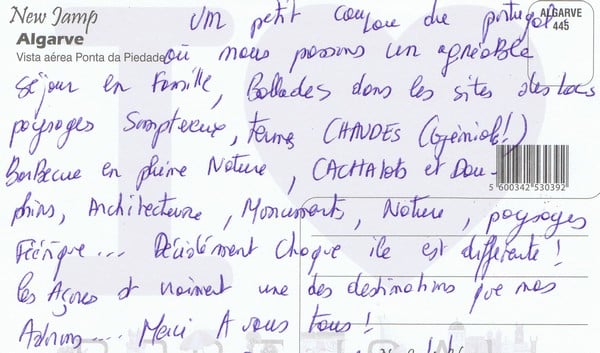 New Jamp
Algarve
Vista aérea Ponta da Piedade
ALGARVE
445
Um petit coucou du portugal
où nous passons un agréable
séjour en Famille, Ballades dans les sites des lacs
paysages Somptueux, termes CHAUDES (Génial!)
Barbecue en pleine Nature, CACHAlots et Dau-
phins, Architecture, Monuments, Nature, paysages
Féérique... Décidément Chaque ile est différente!
les Açores st vraiment une des destinations que nos
Adorons.... Merci A vous tous!
5 600342 530392